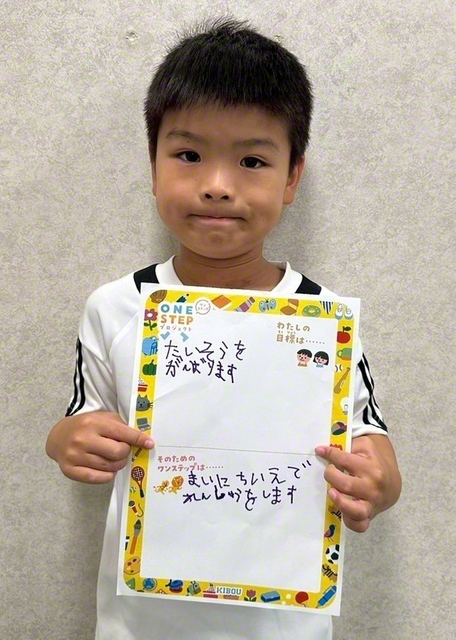 ONE
STEP
プロジェクト
わたしの
目標は……
たいそうを
がんばります
そのための
ワンステップは……
まいにちいえで
れんしゅうをします
KIBOU